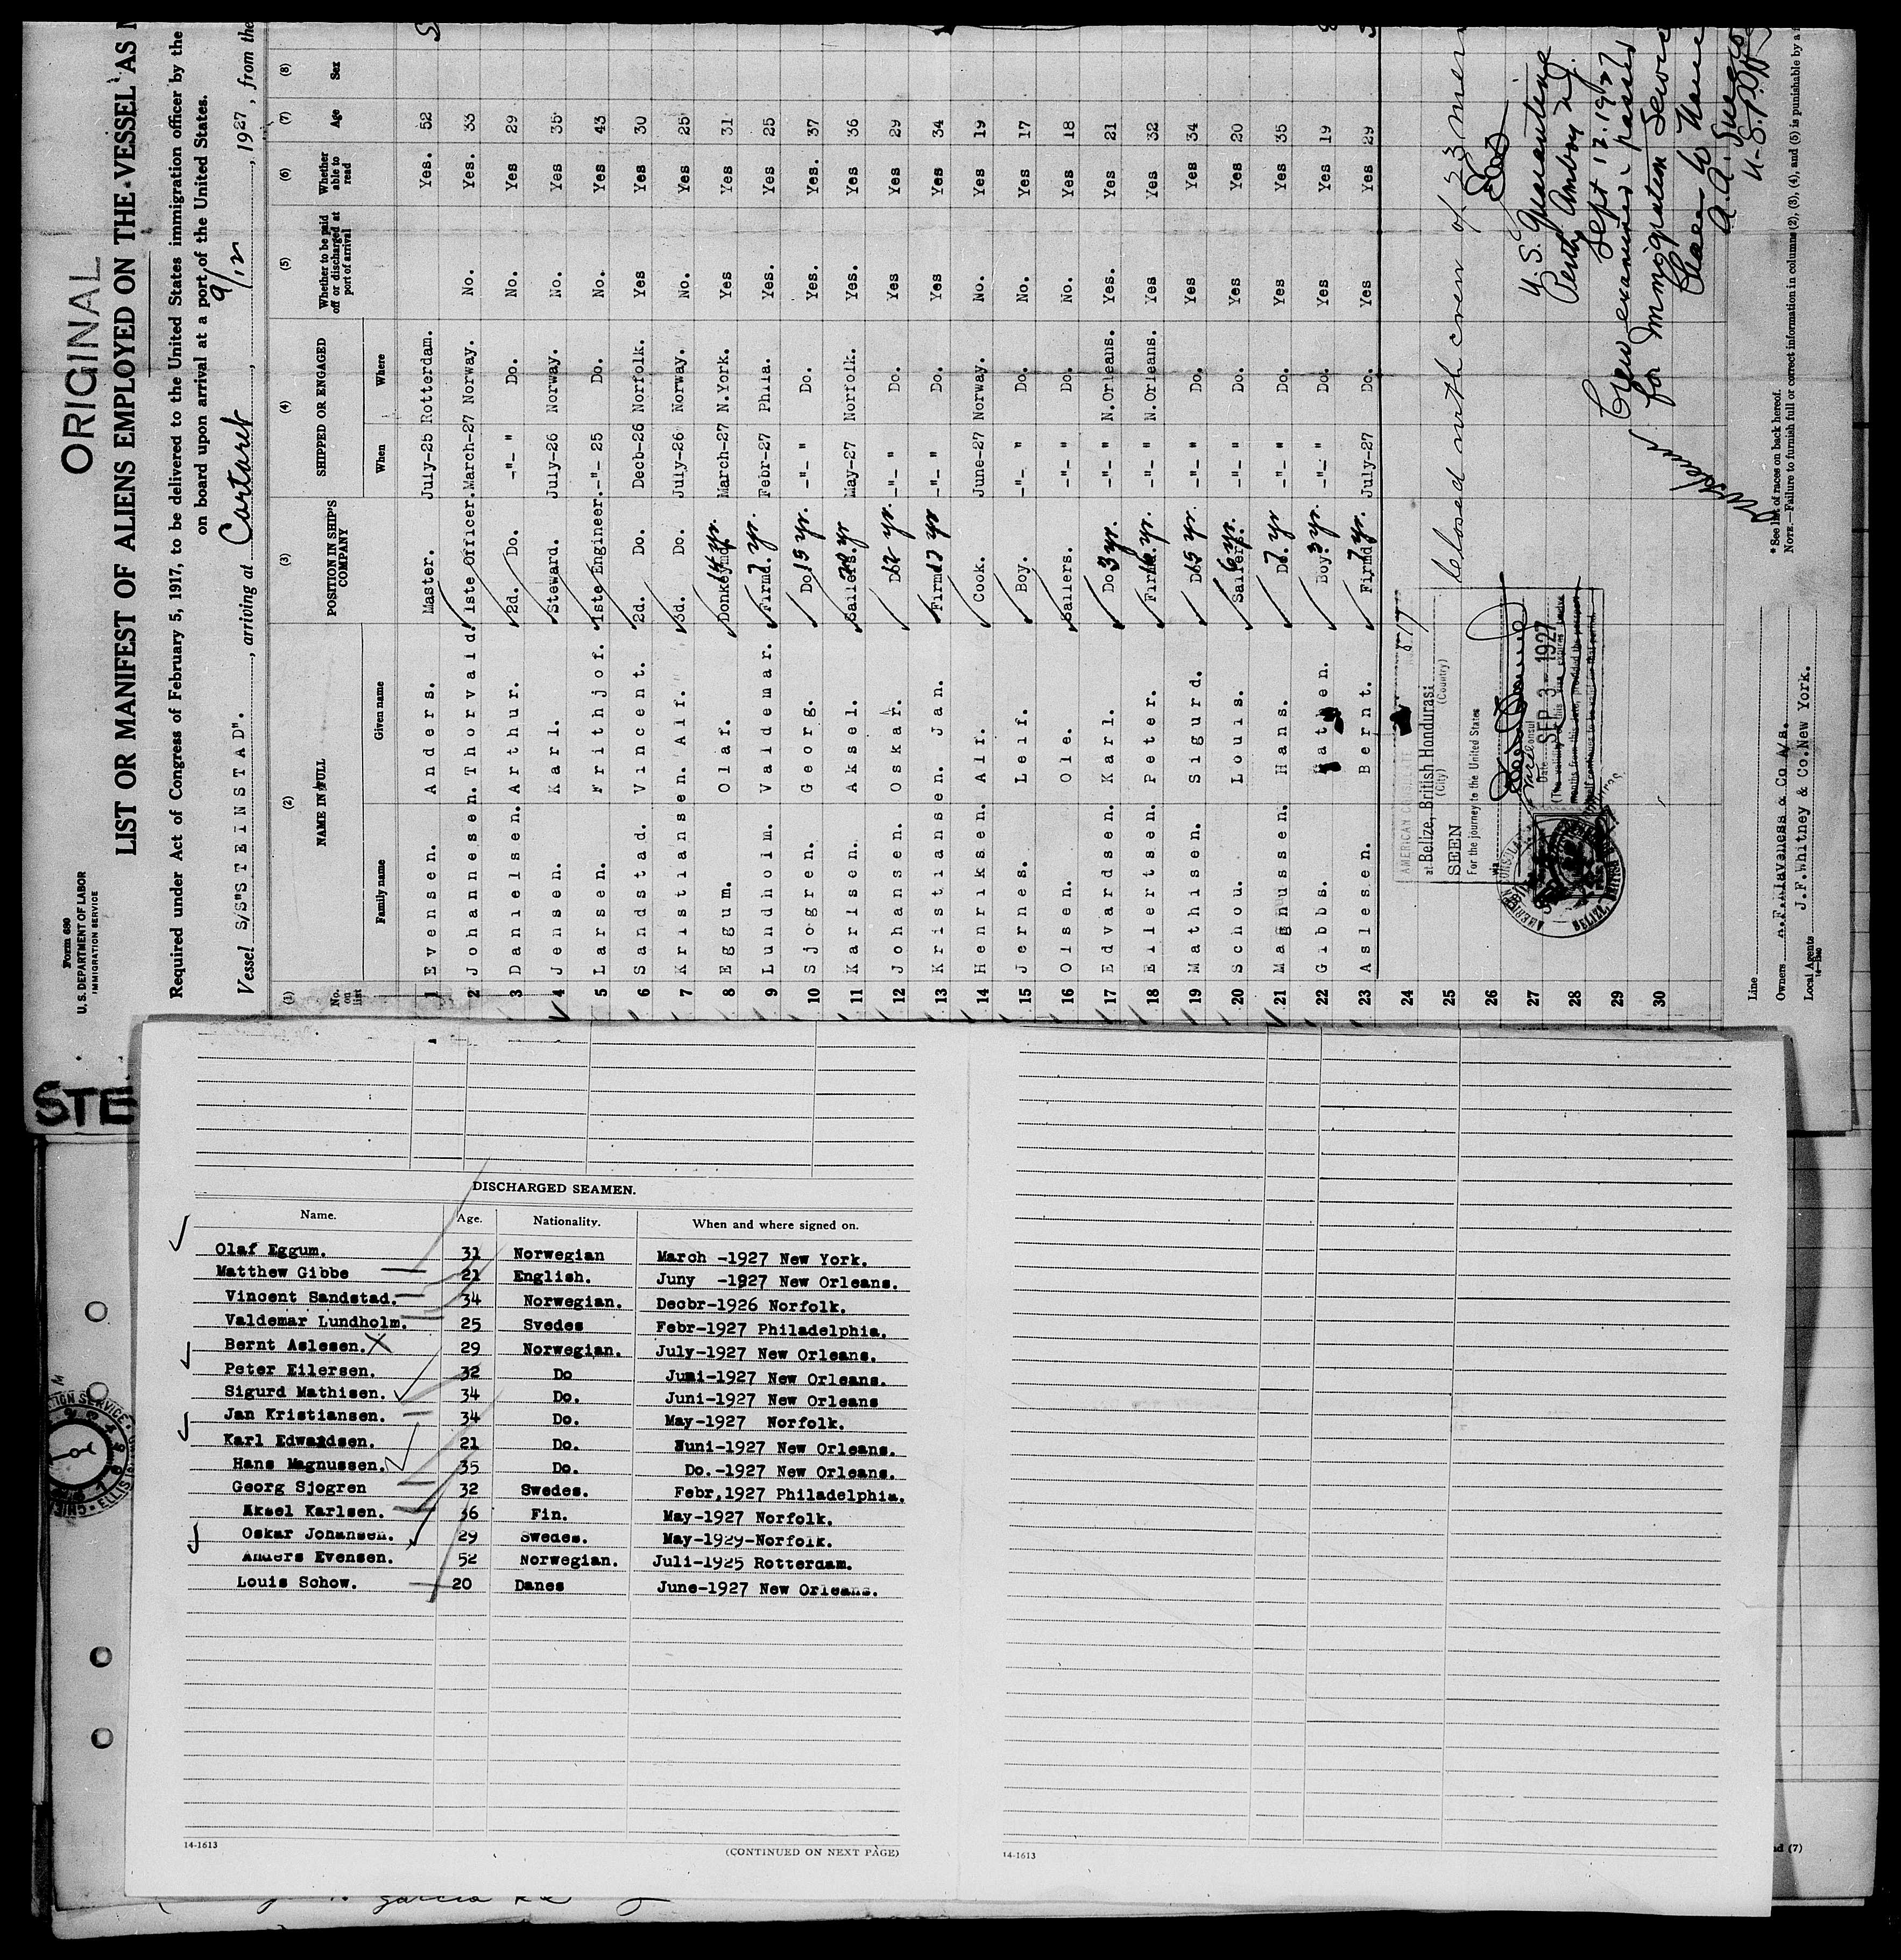 ORIGINAL
Form 680
U. S. DEPARTMENT OF LABOR
IMMIGRATION SERVICE
LIST OR MANIFEST OF ALIENS EMPLOYED ON THE VESSEL AS
Required under Act of Congress of February 5, 1917, to be delivered to the United States immigration officer by the
on board upon arrival at a port of the United States.
Vessel S/S"STEINSTAD"., arriving at Carteret, 9/12, 1927, from the
(1) (2) (3) (4) (5) (6) (7) (8)
No. on list NAME IN FULL POSITION IN SHIP'S COMPANY SHIPPED OR ENGAGED Whether to be paid off or discharged at port of arrival Whether able to read Age Sex
Family name Given name When Where
1 Evensen. Anders. Master. July-25 Rotterdam. Yes. 52
2 Johannesen. Thorvald. 1ste Officer. March-27 Norway. No. Yes. 33
3 Danielsen. Arthur. 2d. Do. -"- " Do. No. Yes 29
4 Jensen. Karl. Steward. July-26 Norway. No. Yes 35
5 Larsen. Frithjof. 1ste Engineer. -"- 25 Do. No. Yes 43
6 Sandstad. Vincent. 2d. Do. Decb-26 Norfolk. Yes Yes 30
7 Kristiansen. Alf. 3d. Do. July-26 Norway. No. Yes 25
8 Eggum. Olaf. Donkeymd. 14 yr. March-27 N.York. Yes Yes 31
9 Lundholm. Valdemar. Firmd. 7 yr. Febr-27 Phila. Yes. Yes 25
10 Sjogren. Georg. Do. 15 yr. -"- " Do. Yes. Yes. 37
11 Karlsen. Aksel. Sailers. 20 yr May-27 Norfolk. Yes. Yes 36
12 Johansen. Oskar. Do. 12 yr. -"- " Do. Yes Yes 29
13 Kristiansen. Jan. Firmd. 17 yr -"- " Do. Yes Yes 34
14 Henriksen. Alf. Cook. June-27 Norway. No. Yes 19
15 Jernes. Leif. Boy. -"- " Do. No. Yes 17
16 Olsen. Ole. Sailers. -"- " Do. No. Yes 18
17 Edvardsen. Karl. Do. 3 yr. -"- " N.Orleans. Yes. Yes 21
18 Eilertsen. Peter. Firmd. 16 yr. -"- " N.Orleans. Yes Yes 32
19 Mathisen. Sigurd. Do. 15 yr. -"- " Do. Yes Yes 34
20 Schou. Louis. Sailers. 6 yr. -"- " Do. Yes Yes 20
21 Magnussen. Hans. Do. 7 yr -"- " Do. Yes Yes 35
22 Gibbs. Boy. 3 yr. -"- " Do. Yes Yes 19
23 Aslesen. Bernt. Firmd. 7 yr. July-27 Do. Yes Yes 29
24
25
26
27
28
29
30
AMERICAN CONSULATE
at Belize, British Honduras:
(City) (Country)
SEEN
For the journey to the United States
via
Date SEP 3 - 1927
closed with crew of 23 men
U. S. Quarantine
Perth Amboy N.J.
Sept 12. 1927
Crew examined & passed
for Immigration Service
Line
Owners A.F.Klaveness & Co A/s.
Local Agents J.F.Whitney & Co.New York.
*See list of races on back hereof.
NOTE.—Failure to furnish full or correct information in columns (2), (3), (4), and (5) is punishable by a
STE
DISCHARGED SEAMEN.
Name. Age. Nationality. When and where signed on.
Olaf Eggum. 31 Norwegian March -1927 New York.
Matthew Gibbe 21 English. Juny -1927 New Orleans.
Vincent Sandstad. 34 Norwegian. Decbr-1926 Norfolk.
Valdemar Lundholm. 25 Svedes Febr-1927 Philadelphia.
Bernt Aslesen. 29 Norwegian. July-1927 New Orleans.
Peter Eilersen. 32 Do Juni-1927 New Orleans.
Sigurd Mathisen. 34 Do. Juni-1927 New Orleans
Jan Kristiansen. 34 Do. May-1927 Norfolk.
Karl Edwardsen. 21 Do. Juni-1927 New Orleans.
Hans Magnussen. 35 Do. Do.-1927 New Orleans.
Georg Sjogren 32 Swedes. Febr,1927 Philadelphia.
Aksel Karlsen. 36 Fin. May-1927 Norfolk.
Oskar Johansen. 29 Swedes. May-1929-Norfolk.
Anders Evensen. 52 Norwegian. Juli-1925 Rotterdam.
Louis Schow. 20 Danes June-1927 New Orleans.
14-1613
(CONTINUED ON NEXT PAGE)
14-1613
nd (7)